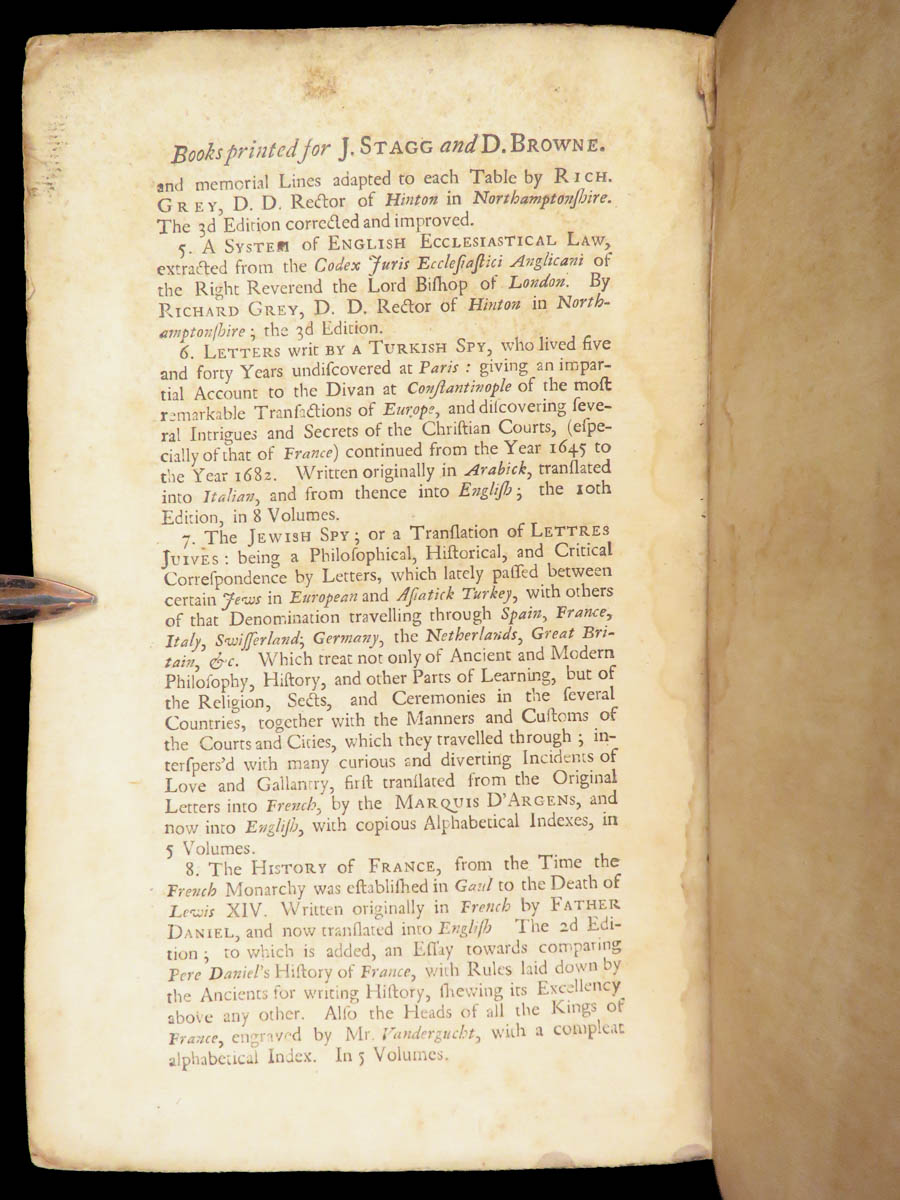 Books printed for J. STAGG and D. BROWNE.
and memorial Lines adapted to each Table by RICH.
GREY, D. D. Rector of Hinton in Northamptonſhire.
The 3d Edition corrected and improved.
5. A SYSTEM of ENGLISH ECCLESIASTICAL LAW,
extracted from the Codex Juris Eccleſiaſtici Anglicani of
the Right Reverend the Lord Biſhop of London. By
RICHARD GREY, D. D. Rector of Hinton in North-
amptonſhire; the 3d Edition.
6. LETTERS writ BY A TURKISH SPY, who lived five
and forty Years undiſcovered at Paris: giving an impar-
tial Account to the Divan at Conſtantinople of the moſt
remarkable Tranſactions of Europe, and diſcovering ſeve-
ral Intrigues and Secrets of the Chriſtian Courts, (eſpe-
cially of that of France) continued from the Year 1645 to
the Year 1682. Written originally in Arabick, tranſlated
into Italian, and from thence into Engliſh; the 10th
Edition, in 8 Volumes.
7. The JEWISH SPY; or a Tranſlation of LETTRES
JUIVES: being a Philoſophical, Hiſtorical, and Critical
Correſpondence by Letters, which lately paſſed between
certain Jews in European and Aſiatick Turkey, with others
of that Denomination travelling through Spain, France,
Italy, Swiſſerland; Germany, the Netherlands, Great Bri-
tain, &c. Which treat not only of Ancient and Modern
Philoſophy, Hiſtory, and other Parts of Learning, but of
the Religion, Sects, and Ceremonies in the ſeveral
Countries, together with the Manners and Cuſtoms of
the Courts and Cities, which they travelled through; in-
terſpers'd with many curious and diverting Incidents of
Love and Gallantry, firſt tranſlated from the Original
Letters into French, by the MARQUIS D'ARGENS, and
now into Engliſh, with copious Alphabetical Indexes, in
5 Volumes.
8. The HISTORY of FRANCE, from the Time the
French Monarchy was eſtabliſhed in Gaul to the Death of
Lewis XIV. Written originally in French by FATHER
DANIEL, and now tranſlated into Engliſh The 2d Edi-
tion; to which is added, an Eſſay towards comparing
Pere Daniel's Hiſtory of France, with Rules laid down by
the Ancients for writing Hiſtory, ſhewing its Excellency
above any other. Alſo the Heads of all the Kings of
France, engraved by Mr. Vandergucht, with a compleat
alphabetical Index. In 5 Volumes.